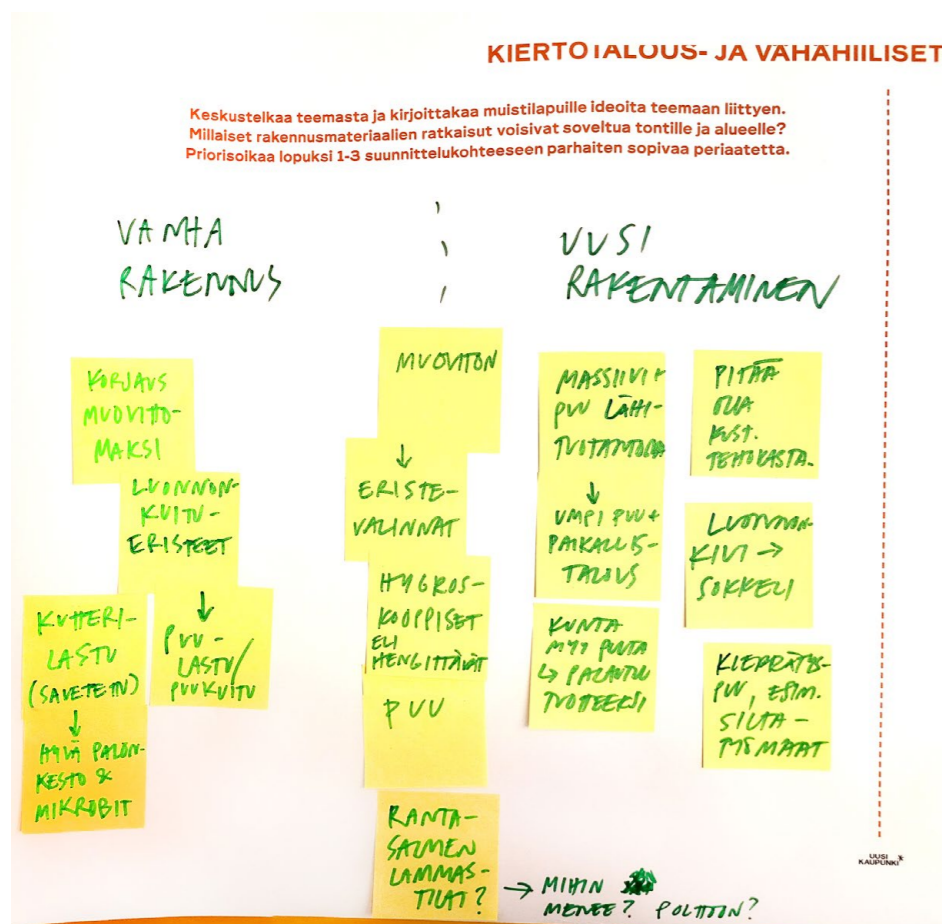 KIERTOTALOUS- JA VÄHÄHIILISET
Keskustelkaa teemasta ja kirjoittakaa muistilapuille ideoita teemaan liittyen.
Millaiset rakennusmateriaalien ratkaisut voisivat soveltua tontille ja alueelle?
Priorisoikaa lopuksi 1-3 suunnittelukohteeseen parhaiten sopivaa periaatetta.
VANHA
RAKENNUS
KORJAUS
MUOVITTO-
MAKSI
LUONNON-
KUITU-
ERISTEET
KUTTERI-
LASTU
(SAVETETTU)
↓
HYVÄ PALON-
KESTO &
MIKROBIT
↓
PUU-
LASTU/
PUUKUITU
MUOVITON
↓
ERISTE-
VALINNAT
HYGROS-
KOOPPISET
ELI
HENGITTÄVÄT
PUU
RANTA-
SALMEN
LAMMAS-
TILAT?
→ MIHIN
MENEE? POLTTOON?
UUSI
RAKENTAMINEN
MASSIIVI-
PUU LÄHI-
TUOTANTONA
↓
UMPIPUU +
PAIKALLIS-
TALOUS
KUNTA
MYY PUUTA
↳ PALAUTUU
TUOTTEEKSI
PITÄÄ
OLLA
KUST.
TEHOKASTA.
LUONNON-
KIVI →
SOKKELI
KIERRÄTYS-
PUU, ESIM.
SILTA-
TYÖMAAT
UUSI
KAUPUNKI